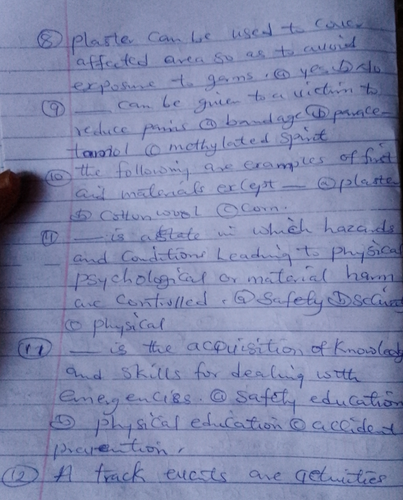 (8) plaster can be used to cover
affected area so as to avoid
exposure to gems. (a) yes (b) No
(9) ___ can be given to a victim to
reduce pains (a) bandage (b) parace-
tamol (c) methylated spirit
(10) the following are examples of first
aid materials except — (a) plaster
(b) Cotton wool (c) Corn.
(11) — is a state in which hazards
and Conditions Leading to physical
psychological or material harm
are Controlled. (a) Safety (b)
(c) physical
(11) — is the acquisition of knowledg
and skills for dealing with
emergencies. (a) safety education
(b) physical education (c) accident
prevention.
(12) A track events are